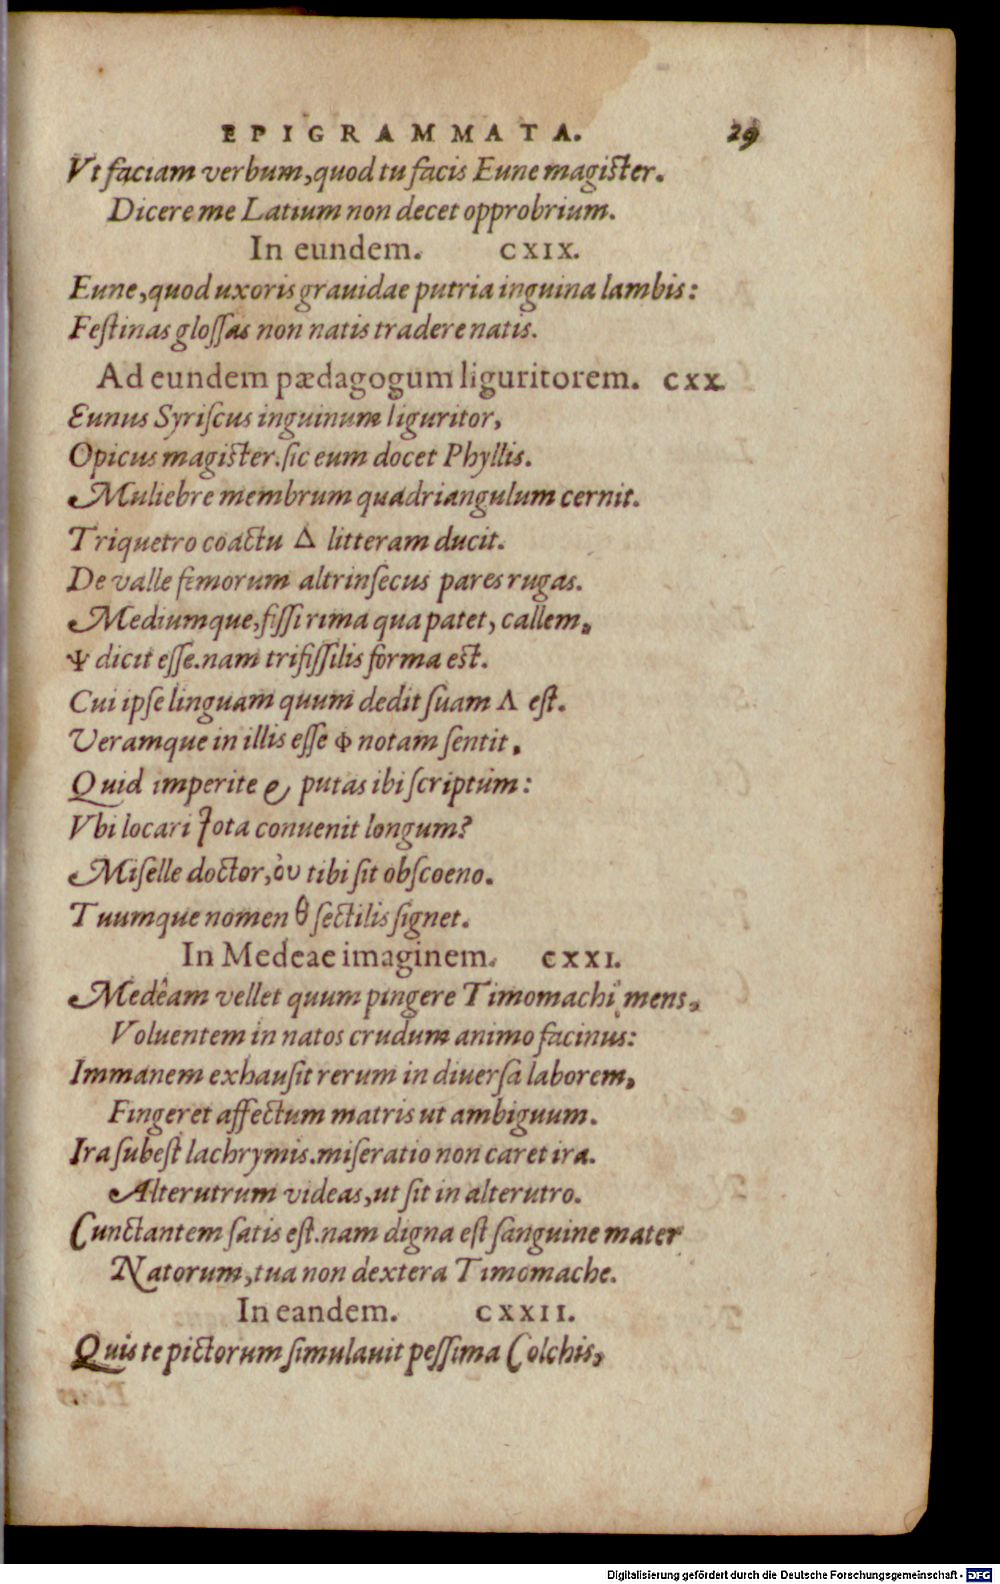 EPIGRAMMATA. 29
Vt faciam verbum, quod tu facis Eune magister.
Dicere me Latium non decet opprobrium.
In eundem. CXIX.
Eune, quod uxoris grauidae putria inguina lambis:
Feſtinas gloſſas non natis tradere natis.
Ad eundem pædagogum liguritorem. CXX.
Eunus Syriſcus inguinum liguritor,
Opicus magiſter. ſic eum docet Phyllis.
Muliebre membrum quadriangulum cernit.
Triquetro coactu Δ litteram ducit.
De valle femorum altrinſecus pares rugas.
Mediumque, fiſſi rima qua patet, callem,
Ψ dicit eſſe. nam trifiſſilis forma eſt.
Cui ipſe linguam quum dedit ſuam Λ eſt.
Veramque in illis eſſe Φ notam ſentit,
Quid imperite ϱ putas ibi ſcriptum:
Vbi locari Jota conuenit longum?
Miſelle doctor, ὀυ tibi ſit obſcoeno.
Tuumque nomen θ ſectilis ſignet.
In Medeae imaginem. CXXI.
Medêam vellet quum pingere Timomachi mens,
Voluentem in natos crudum animo facinus:
Immanem exhauſit rerum in diuerſa laborem,
Fingeret affectum matris ut ambiguum.
Ira ſubeſt lachrymis. miſeratio non caret ira.
Alterutrum videas, ut ſit in alterutro.
Cunctantem ſatis eſt. nam digna eſt ſanguine mater
Natorum, tua non dextera Timomache.
In eandem. CXXII.
Quis te pictorum ſimulauit peſſima Colchis,
Digitalisierung gefördert durch die Deutsche Forschungsgemeinschaft - DFG